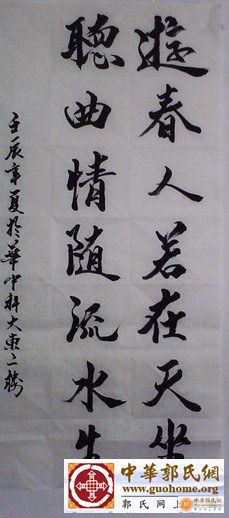 遊春人若在天坐
聽曲情隨流水生
壬辰年夏於華中科大東二樓
中華郭氏網
www.guohome.org
郭氏网